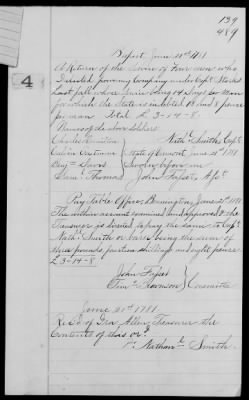 139
489
4
Dorset, June 21st 1781.
A Return of the Service of Four men who
Detached from my Company under Capt. Starks
Last fall whose Service being 14 Days Per Man
for which the State is indebted 18 and 8 pence
per man Total £ 3-14-8
Names of the above Soldiers
Charles Hamilton
Calvin Eastman
Benj. Davis
Saml. Thomas
Nathl. Smith, Capt.
State of Vermont, June 21st 1781
Sworn before me
John Fassett, Asst.
Pay Table Office, Bennington, June 21st 1781.
The within account examined and approved & the
Treasurer is directed to pay the same to Capt.
Nathl. Smith or bearer being the sum of
three pounds, fourteen shillings and eight pence
£ 3-14-8
John Fassett
Timo. Brownson
Committee
June 21st 1781.
Recd. of Ira Allen, Treasurer the
Contents of this or.
Pr. Nathanl. Smith.